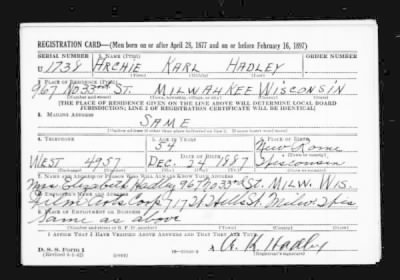 REGISTRATION CARD—(Men born on or after April 28, 1877 and on or before February 16, 1897)
SERIAL NUMBER 1. NAME (Print) ORDER NUMBER
U 1738 ARCHIE KARL HADLEY
(First) (Middle) (Last)
2. PLACE OF RESIDENCE (Print)
967 NO 33RD ST. MILWAUKEE WISCONSIN
(Number and street) (Town, township, village, or city) (County) (State)
[THE PLACE OF RESIDENCE GIVEN ON THE LINE ABOVE WILL DETERMINE LOCAL BOARD
JURISDICTION; LINE 2 OF REGISTRATION CERTIFICATE WILL BE IDENTICAL]
3. MAILING ADDRESS
SAME
(Mailing address if other than place indicated on line 2. If same insert word same)
4. TELEPHONE 5. AGE IN YEARS 6. PLACE OF BIRTH
54 New Rome
DATE OF BIRTH (Town or county)
WEST 4957 DEC. 24 1887 Wisconsin
(Exchange) (Number) (Mo.) (Day) (Yr.) (State or country)
7. NAME AND ADDRESS OF PERSON WHO WILL ALWAYS KNOW YOUR ADDRESS
Mrs Elizabeth Hadley 967 No 33rd St. MILW. WIS.
8. EMPLOYER'S NAME AND ADDRESS
717
9. PLACE OF EMPLOYMENT OR BUSINESS
Same as above
(Number and street or R. F. D. number) (Town) (County) (State)
I AFFIRM THAT I HAVE VERIFIED ABOVE ANSWERS AND THAT THEY ARE TRUE.
D. S. S. Form 1
(Revised 4-1-42) (over) A. K. Hadley
(Registrant's signature)